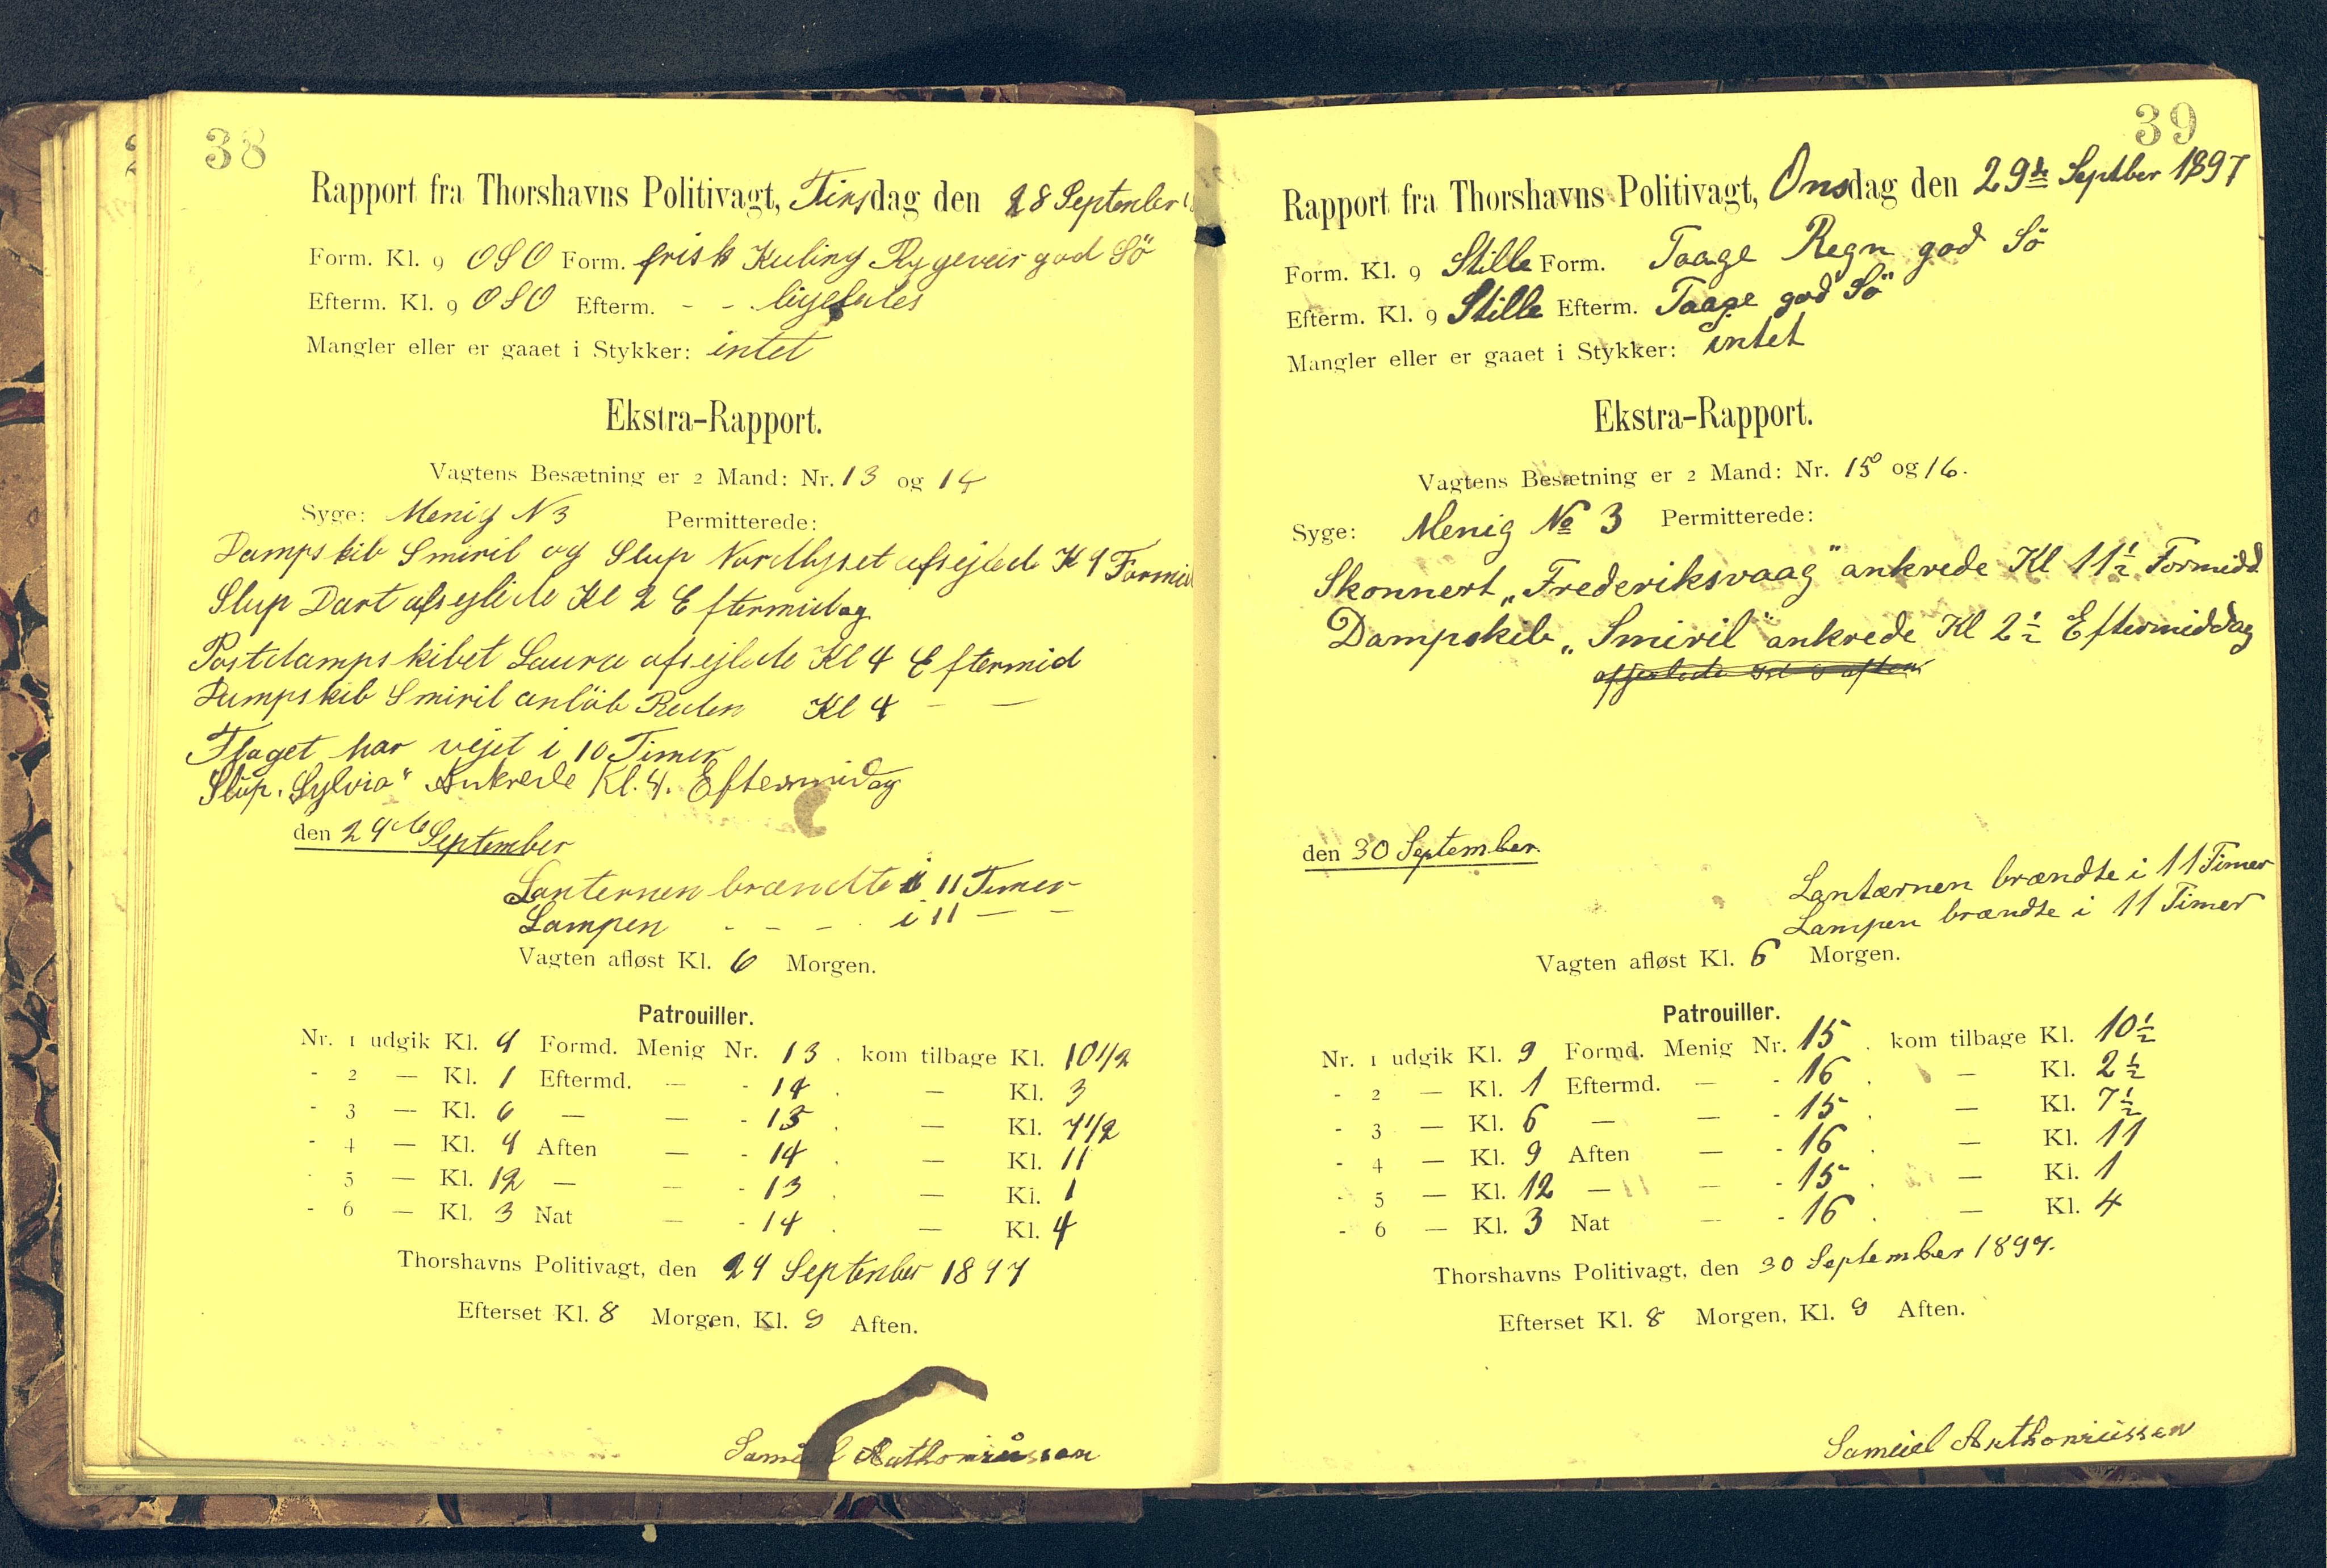 38
Rapport fra Thorshavns Politivagt, Tirsdag den 28 September
Form. Kl. 9 OSO Form. frisk Kuling Rygeveir god Sö
Efterm. Kl. 9 OSO Efterm. - - ligesales
Mangler eller er gaaet i Stykker: intet
Ekstra-Rapport.
Vagtens Besætning er 2 Mand: Nr. 13 og 14
Syge: Menig N 3 Permitterede:
Dampskib Smiril og Slup Nordlyset afsejlede Kl 9 Formid
Slup Dart afsejlede Kl 2 Eftermidag
Postdampskibet Laura afsejlede Kl 4 Eftermid
Dampskib Smiril anlöb Reden Kl 4 — —
Flaget har vejet i 10 Timer
Slup. Sylvia" Ankrede Kl. 4. Eftermidag
den 29de September
Lanternen brændte i 11 Timer
Lampen - - - i 11 — —
Vagten afløst Kl. 6 Morgen.
Patrouiller.
Nr. 1 udgik Kl. 9 Formd. Menig Nr. 13. kom tilbage Kl. 10 1/2
- 2 — Kl. 1 Eftermd. — - 14. — Kl. 3
- 3 — Kl. 6 — — - 13. — Kl. 7 1/2
- 4 — Kl. 9 Aften — - 14. — Kl. 11
- 5 — Kl. 12 — — - 13. — Kl. 1
- 6 — Kl. 3 Nat — - 14. — Kl. 4
Thorshavns Politivagt, den 29 September 1897
Efterset Kl. 8 Morgen, Kl. 9 Aften.
Samuel Anthoniussen
39
Rapport fra Thorshavns Politivagt, Onsdag den 29de Septber 1897
Form. Kl. 9 Stille Form. Taage Regn god Sö
Efterm. Kl. 9 Stille Efterm. Taage god Sö
Mangler eller er gaaet i Stykker: intet
Ekstra-Rapport.
Vagtens Besætning er 2 Mand: Nr. 15 og 16.
Syge: Menig No 3 Permitterede:
Skonnert „Frederiksvaag" ankrede Kl 11 1/2 Formidd
Dampskib „Smiril" ankrede Kl 2 1/2 Eftermiddag
den 30 September.
Lantærnen brændte i 11 Timer
Lampen brændte i 11 Timer
Vagten afløst Kl. 6 Morgen.
Patrouiller.
Nr. 1 udgik Kl. 9 Formd. Menig Nr. 15. kom tilbage Kl. 10 1/2
- 2 — Kl. 1 Eftermd. — - 16. — Kl. 2 1/2
- 3 — Kl. 6 — — - 15. — Kl. 7 1/2
- 4 — Kl. 9 Aften — - 16. — Kl. 11
- 5 — Kl. 12 — — - 15. — Kl. 1
- 6 — Kl. 3 Nat — - 16. — Kl. 4
Thorshavns Politivagt, den 30 September 1897.
Efterset Kl. 8 Morgen, Kl. 9 Aften.
Samuel Anthoniussen